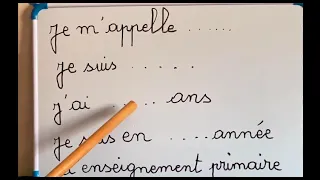 Je m'appelle ......
Je suis .....
J'ai ..... ans
Je suis en ....année
enseignement primaire